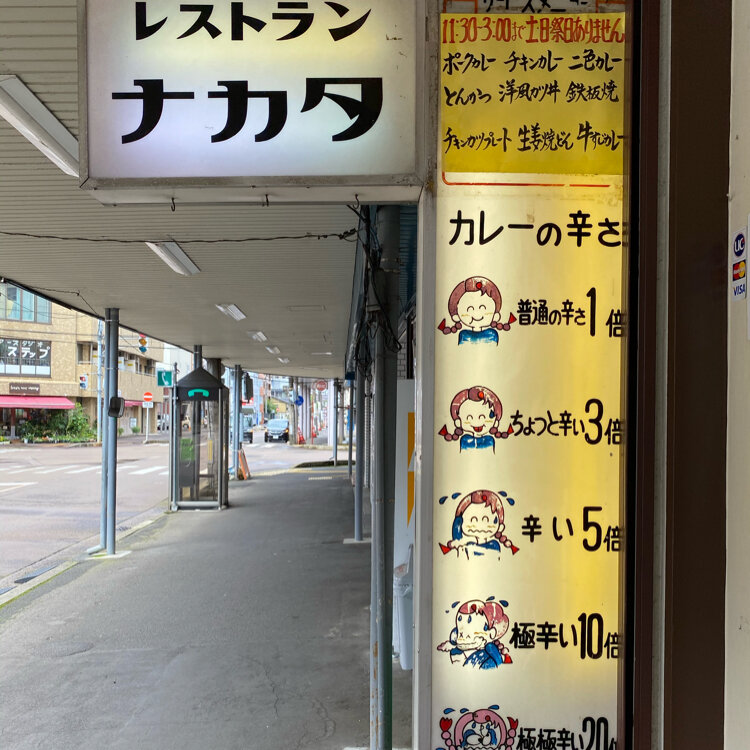 レストラン
ナカタ
11:30-3:00まで土日祭日ありません
ポークカレー チキンカレー 二色カレー
とんかつ 洋風カツ丼 鉄板焼
チキンカツプレート 生姜焼どん 牛すじカレー
カレーの辛さ
普通の辛さ1倍
ちょっと辛い3倍
辛い5倍
極辛い10倍
極極辛い20倍
ステップ
UC
MasterCard
VISA